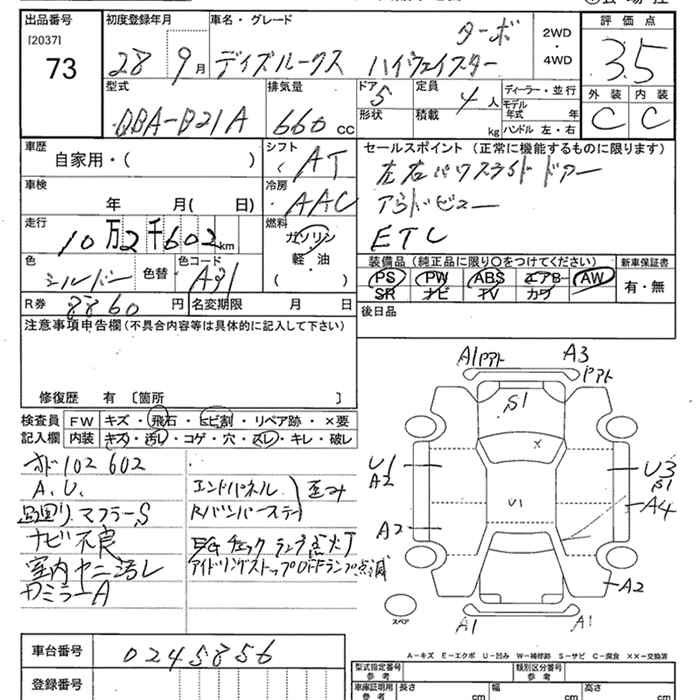 出品番号 初度登録年月 車名・グレード 2WD・4WD 評価点
[2037]
73 28 9月 デイズルークス ハイウェイスター ターボ 3.5
型式 排気量 ドア 5 定員 4人 ディーラー・並行 外装 内装
DBA-B21A 660cc 形状 積載 kg モデル年式 年 C C
ハンドル 左・右
車歴 シフト セールスポイント(正常に機能するものに限ります)
自家用・( ) AT 左右パワースライドドアー
車検 冷房 アラウンドビュー
年 月( 日) AAC ETC
走行 燃料
10万2千602km ガソリン
軽・油
( )
装備品(純正品に限り○をつけてください) 新車保証書
色 色替 色コード PS PW ABS エアB AW 有・無
シルバー SR ナビ TV カワ
R券 8860円 名変期限 月 日 後日品
注意事項申告欄(不具合内容等は具体的に記入して下さい)
修復歴 有 〔箇所 〕
検査員 FW キズ・飛石・ヒビ割・リペア跡・×要
記入欄 内装 キズ・汚レ・コゲ・穴・スレ・キレ・破レ
102602
A.U. エンドパネル 歪み
マフラーS
ナビ不良 チェックランプ点灯
室内ヤニ汚レ アイドリングストップOFFランプ点滅
ミラーA
A1 A3
S1
×
U1 A2 U3 S1
A4
U1
A2
A2
スペア A1 A1
A-キズ E-エクボ U-凹み W-補修跡 S-サビ C-腐食 ××-交換済
車台番号 0245856
登録番号
型式指定番号 参考 類別区分番号 参考
車庫証明用 参考 長さ cm 幅 cm 高さ cm